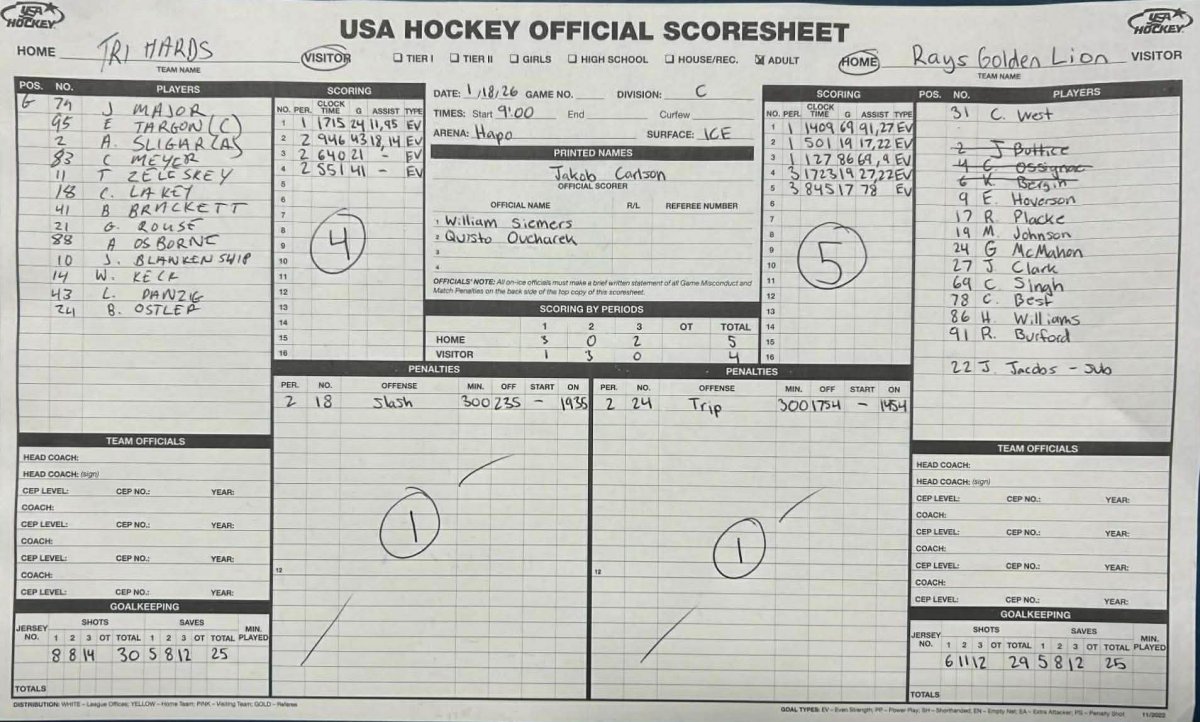 USA HOCKEY
USA HOCKEY OFFICIAL SCORESHEET
USA HOCKEY
HOME TRI HARDS VISITOR
TEAM NAME
TIER I TIER II GIRLS HIGH SCHOOL HOUSE/REC. ADULT
HOME Rays Golden Lion VISITOR
TEAM NAME
POS. NO. PLAYERS
G 74 J MAJOR
95 E TARGON (C)
2 A. SLIGAR (AS)
83 C MEYER
11 T ZELESKEY
18 C. LAKEY
41 B BRACKETT
21 G. ROUSE
88 A OSBORNE
10 J. BLANKENSHIP
14 W. KECK
43 L. DANZIG
24 B. OSTLER
SCORING
NO. PER. CLOCK TIME G ASSIST TYPE
1 1 1715 24 11,95 EV
2 2 946 43 18,14 EV
3 2 640 21 - EV
4 2 551 41 - EV
5
6
7
8
9
10
11
12
13
14
15
16
4
DATE: 1,18,26 GAME NO. DIVISION: C
TIMES: Start 9:00 End Curfew
ARENA: Hapo SURFACE: ICE
PRINTED NAMES
Jakob Carlson
OFFICIAL SCORER
OFFICIAL NAME R/L REFEREE NUMBER
1 William Siemers
2 Quisto Ovcharek
3
4
OFFICIALS' NOTE: All on-ice officials must make a brief written statement of all Game Misconduct and
Match Penalties on the back side of the top copy of this scoresheet.
SCORING BY PERIODS
1 2 3 OT TOTAL
HOME 3 0 2 5
VISITOR 1 3 0 4
SCORING
NO. PER. CLOCK TIME G ASSIST TYPE
1 1 1409 69 91,27 EV
2 1 501 19 17,22 EV
3 1 127 86 69,9 EV
4 3 1723 19 27,22 EV
5 3 845 17 78 EV
6
7
8
9
10
11
12
13
14
15
16
5
POS. NO. PLAYERS
31 C. West
2 J Buttice
4 C. Ossignac
6 K. Bergin
9 E. Hoverson
17 R. Placke
19 M. Johnson
24 G McMahon
27 J Clark
69 C. Singh
78 C. Best
86 H. Williams
91 R. Burford
22 J. Jacobs - Sub
PENALTIES
PER. NO. OFFENSE MIN. OFF START ON
2 18 Slash 300 235 - 1935
12
1
PENALTIES
PER. NO. OFFENSE MIN. OFF START ON
2 24 Trip 300 1754 - 1454
12
1
TEAM OFFICIALS
HEAD COACH:
HEAD COACH: (sign)
CEP LEVEL: CEP NO.: YEAR:
COACH:
CEP LEVEL: CEP NO.: YEAR:
COACH:
CEP LEVEL: CEP NO.: YEAR:
COACH:
CEP LEVEL: CEP NO.: YEAR:
GOALKEEPING
JERSEY NO. SHOTS 1 2 3 OT TOTAL SAVES 1 2 3 OT TOTAL MIN. PLAYED
8 8 14 30 5 8 12 25
TOTALS
TEAM OFFICIALS
HEAD COACH:
HEAD COACH: (sign)
CEP LEVEL: CEP NO.: YEAR:
COACH:
CEP LEVEL: CEP NO.: YEAR:
COACH:
CEP LEVEL: CEP NO.: YEAR:
COACH:
CEP LEVEL: CEP NO.: YEAR:
GOALKEEPING
JERSEY NO. SHOTS 1 2 3 OT TOTAL SAVES 1 2 3 OT TOTAL MIN. PLAYED
6 11 12 29 5 8 12 25
TOTALS
DISTRIBUTION: WHITE – League Offices; YELLOW – Home Team; PINK – Visiting Team; GOLD – Referee
GOAL TYPES: EV – Even Strength, PP – Power Play, SH – Shorthanded, EN – Empty Net, EA – Extra Attacker, PS – Penalty Shot 11/2022